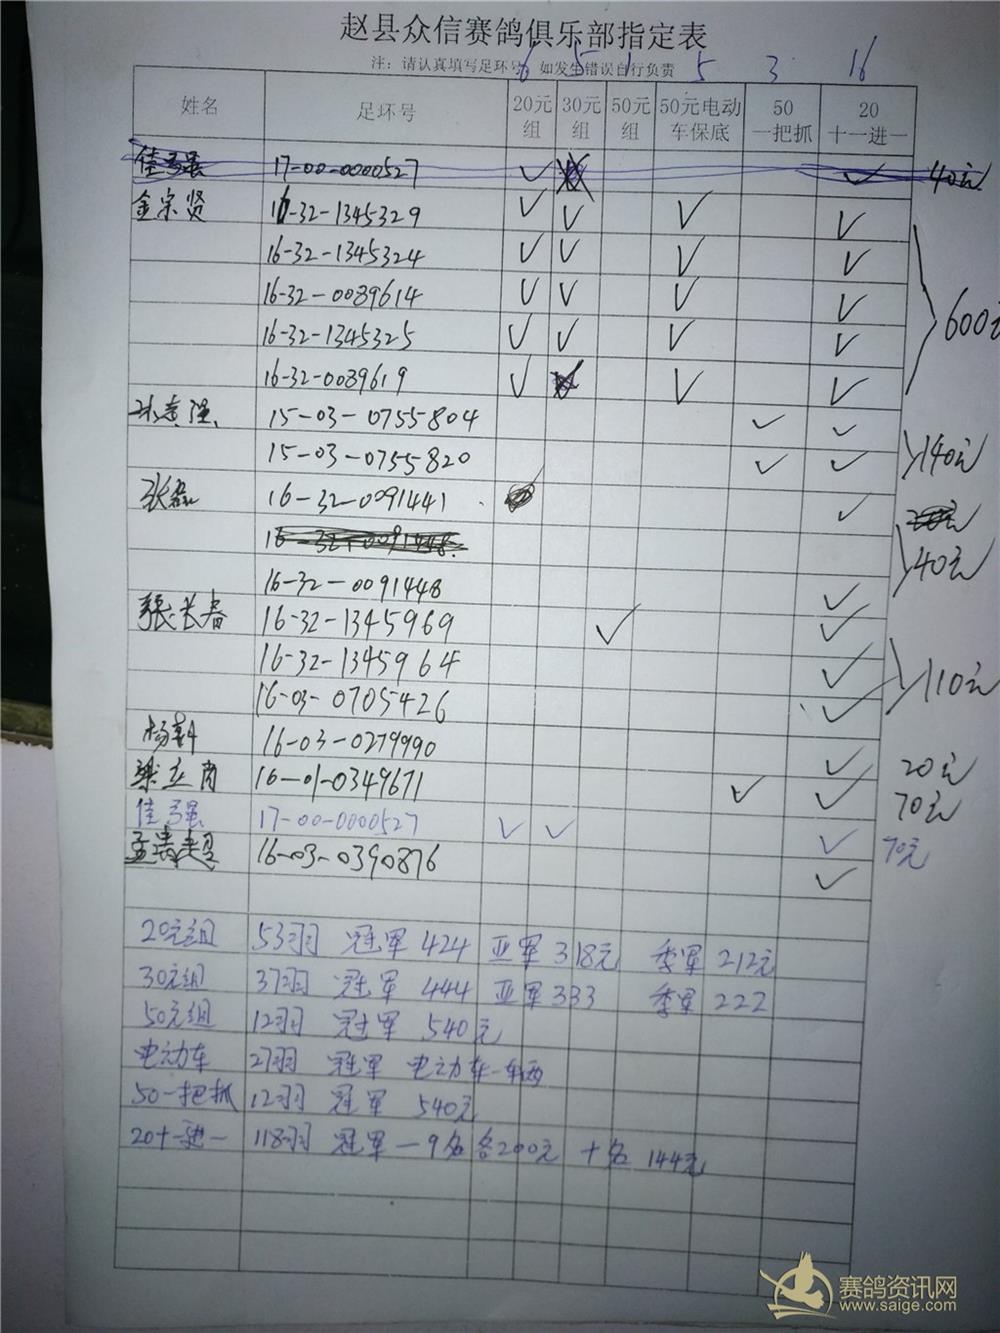 赵县众信赛鸽俱乐部指定表
注：请认真填写足环号 如发生错误自行负责
6 5 1 5 3 16
姓名 足环号 20元组 30元组 50元组 50元电动车保底 50一把抓 20十一进一
17-00-0000527 ✓ ✓ 40元
金宗贤 16-32-1345329 ✓ ✓ ✓ ✓
16-32-1345324 ✓ ✓ ✓ ✓
16-32-0089614 ✓ ✓ ✓ ✓ 600元
16-32-1345325 ✓ ✓ ✓ ✓
16-32-0089619 ✓ ✓ ✓
15-03-0755804 ✓ ✓
15-03-0755820 ✓ ✓ 140元
张磊 16-32-0091441 ✓
16-32-0091448 40元
16-32-0091448 ✓
張长春 16-32-1345969 ✓ ✓
16-32-1345964 ✓ 110元
16-03-0705426 ✓
16-03-0279990 ✓ 20元
梁立肖 16-01-0349671 ✓ ✓ 70元
17-00-0000527 ✓ ✓ ✓ 70元
16-03-0390876 ✓
20元组 53羽 冠军 424 亚军 318元 季军 212元
30元组 37羽 冠军 444 亚军 333 季军 222
50元组 12羽 冠军 540元
电动车 27羽 冠军 电动车一车两
50一把抓 12羽 冠军 540元
20十一进一 118羽 冠军一9名 各200元 十名 144元
赛鸽资讯网
www.saige.com